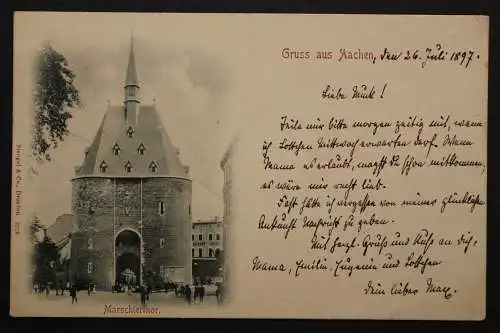 Gruss aus Aachen, den 26. Juli 1897.
Liebe Muck!
Teile mir bitte morgen zeitig mit, wann
ich Lottchen Mittwoch erwarten darf. Wenn
Mama es erlaubt, magst Du schon mitkommen,
es wäre mir recht lieb.
Fast hätte ich vergessen von meiner glücklichen
Ankunft Nachricht zu geben.
Mit herzl. Gruß und Kuß an Dich,
Mama, Emilie, Eugenie und Lottchen
Dein lieber Max.
Marschierthor.
Stengel & Co., Dresden